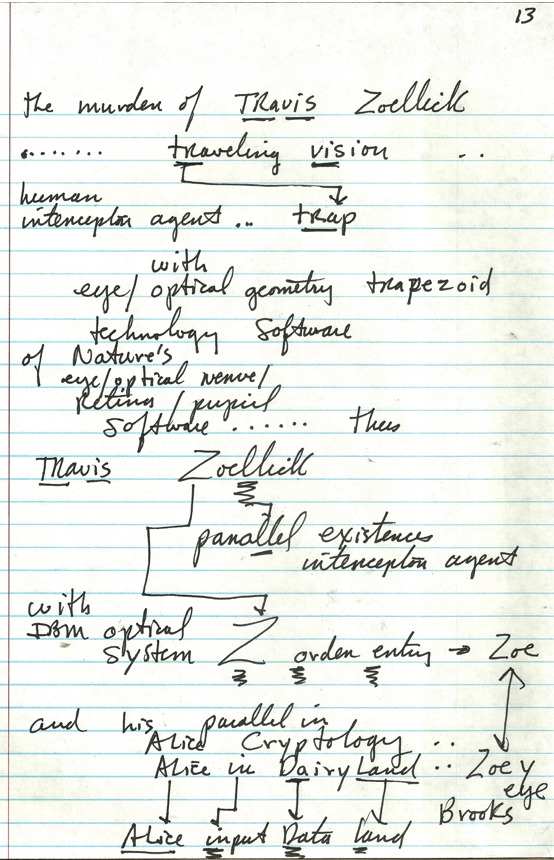 13
the murder of TRavis Zoellick
........ traveling vision ..
human
interceptor agent ... trap
with
eye/optical geometry trapezoid
technology Software
of Nature's
eye/optical nerve/
Retina/pupil
Software ...... thus
TRavis Zoellick
parallel existences
interceptor agent
with
DBM optical
System Z order entry → Zoe
and his parallel in
Alice Cryptology ..
Alice in Dairy Land .. Zoey
eye
Brooks
Alice input Data land